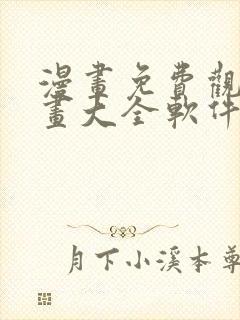 漫畫免費觀
畫大全軟件
月下小溪本尊